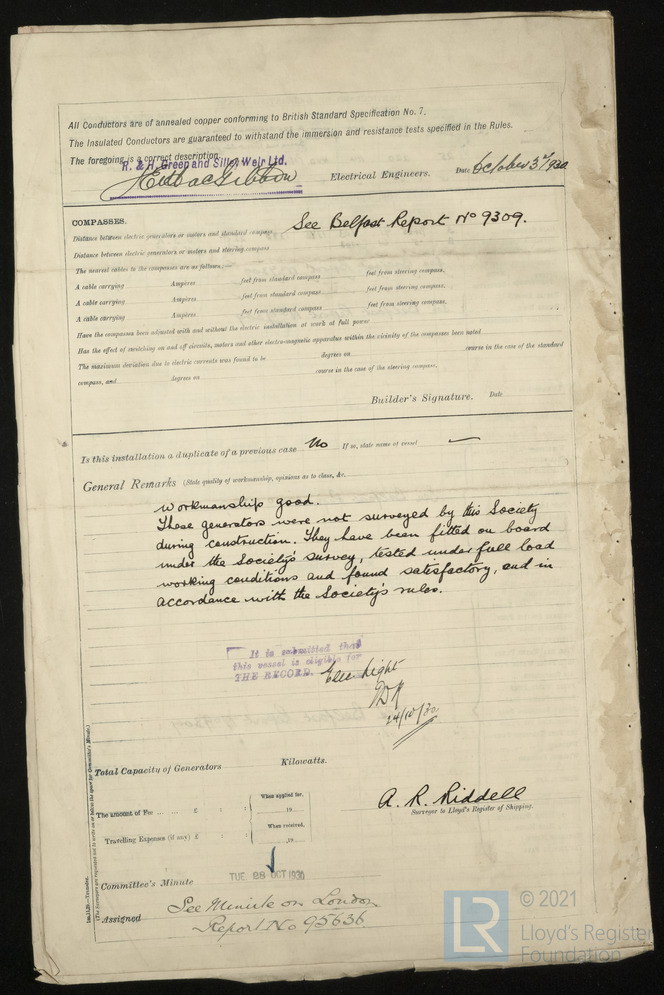 All Conductors are of annealed copper conforming to British Standard Specification No. 7.
The Insulated Conductors are guaranteed to withstand the immersion and resistance tests specified in the Rules.
The foregoing is a correct description.
R. & H. Green and Silley Weir Ltd.
Electrical Engineers. Date October 3rd 1930
COMPASSES.
See Belfast Report No 9309.
Distance between electric generators or motors and standard compass
Distance between electric generators or motors and steering compass
The nearest cables to the compasses are as follows:—
A cable carrying Ampères feet from standard compass feet from steering compass.
A cable carrying Ampères feet from standard compass feet from steering compass.
A cable carrying Ampères feet from standard compass feet from steering compass.
Have the compasses been adjusted with and without the electric installation at work at full power
Has the effect of switching on and off circuits, motors and other electro-magnetic apparatus within the vicinity of the compasses been noted
The maximum deviation due to electric currents was found to be degrees on course in the case of the standard
compass, and degrees on course in the case of the steering compass.
Builder's Signature. Date
Is this installation a duplicate of a previous case No If so, state name of vessel —
General Remarks (State quality of workmanship, opinions as to class, &c.
Workmanship good.
These generators were not surveyed by this Society
during construction. They have been fitted on board
under the Society's survey, tested under full load
working conditions and found satisfactory, and in
accordance with the Society's rules.
It is submitted that
this vessel is eligible for
THE RECORD. Elec Light
24/10/30
Total Capacity of Generators Kilowatts.
The amount of Fee ... ... £ : : When applied for, 19
Travelling Expenses (if any) £ : : When received, 19
A. R. Riddell
Surveyor to Lloyd's Register of Shipping.
Committee's Minute TUE 28 OCT 1930
Assigned See Minute on London
Report No 95636
(The Surveyors are requested not to write on or below the space for Committee's Minute.)
© 2021
LR Lloyd's Register
Foundation